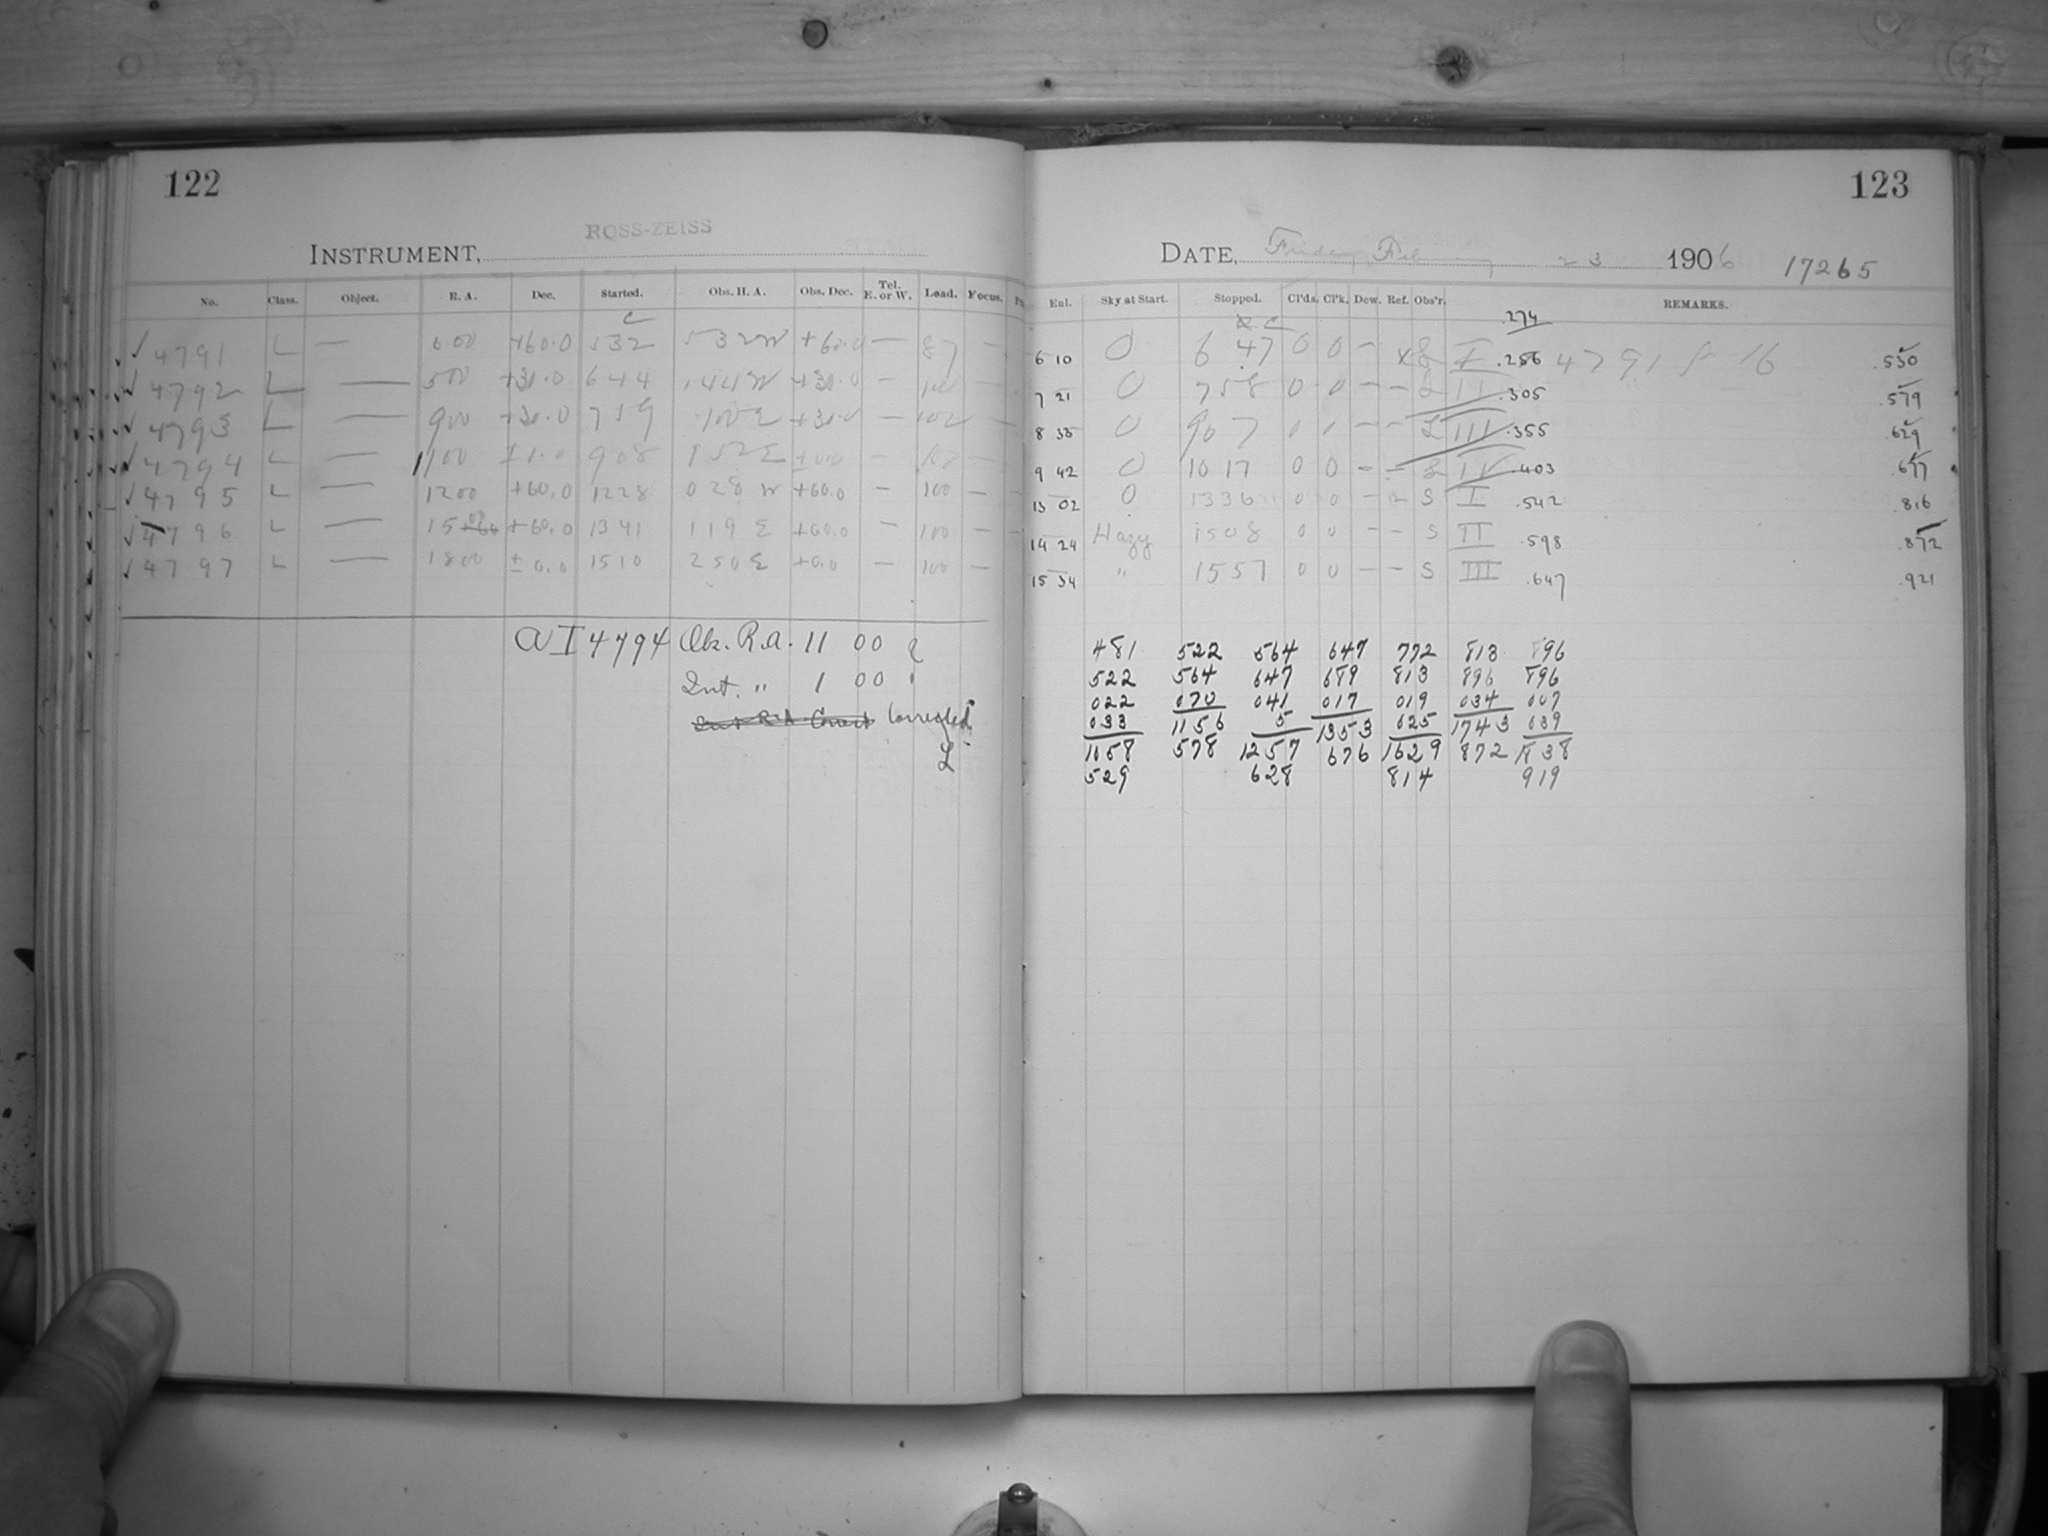 122
ROSS-ZEISS
INSTRUMENT,
No. Class. Object. R. A. Dec. Started. Obs. H. A. Obs. Dec. Tel. E. or W. Lead. Focus.
4791 L — 600 +60.0 532 532W +60.0 — 87 —
4792 L — 500 +30.0 644 144W +30.0 — 100
4793 L — 900 +30.0 759 100E +30.0 — 102 —
4794 L — 1100 ±1.0 908 152E — —
4795 L — 1200 +60.0 1228 028W +60.0 — 100 —
4796 L — 15 00 +60.0 1341 119E +60.0 — 100 —
4797 L — 1800 ±0.0 1510 250E +0.0 — 100 —
AI 4794 Obs. R.A. 11 00
Int. " 1 00
Corrected
L
123
DATE, Friday February 23 1906 17265
Enl. Sky at Start. Stopped. Cl'ds. Cl'k. Dew. Ref. Obs'r. REMARKS.
.274
6 10 0 6 47 0 0 — L I .256 4791 16 .530
7 21 0 758 0 0 — — L II .305 .579
8 33 0 907 0 0 — — L III .355 .629
9 42 0 1017 0 0 — — L IV .403 .677
13 02 0 1336 0 0 — — S I .542 .816
14 24 Hazy 1508 0 0 — — S II .598 .872
15 34 " 1557 0 0 — — S III .647 .921
481 522 564 647 772 813 896
522 564 647 689 813 896 896
022 070 041 017 019 034 007
033 1156 5 1353 025 1743 039
1058 578 1257 676 1629 872 1838
529 628 814 919